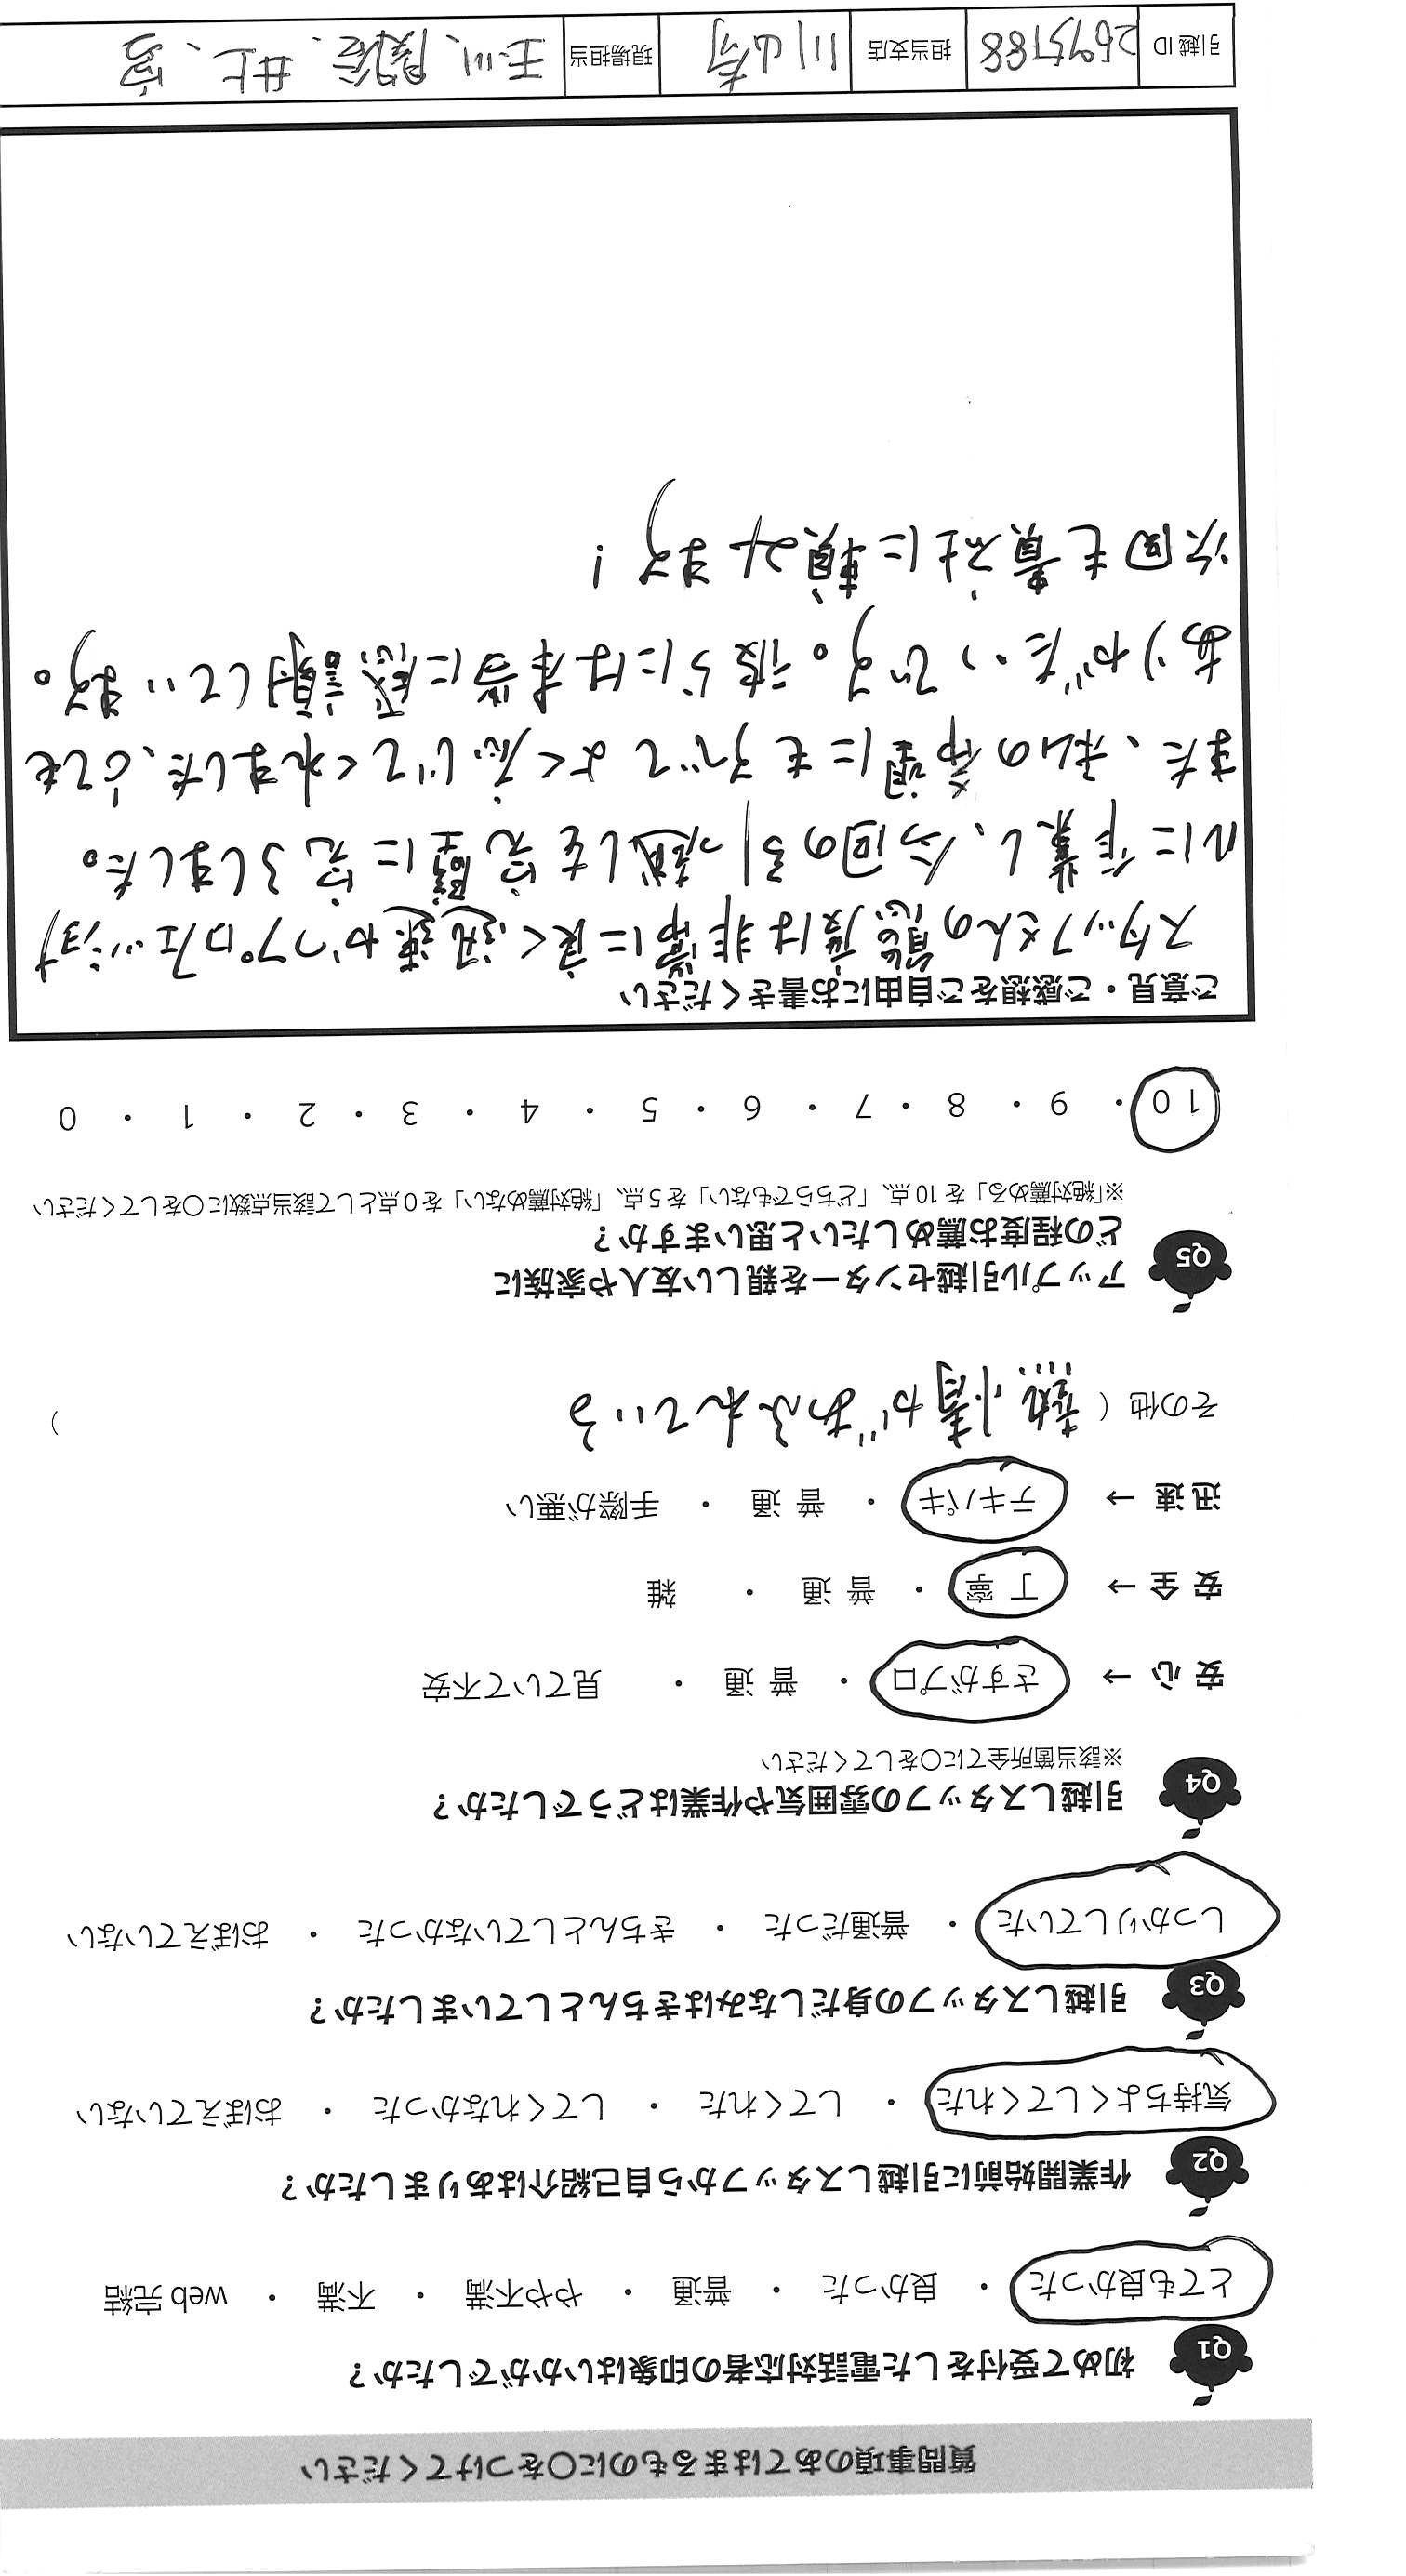 質問事項のあてはまるものに〇をつけてください
Q1 初めて受付をした電話対応者の印象はいかがでしたか？
とても良かった ・ 良かった ・ 普通 ・ やや不満 ・ 不満 ・ web 完結
Q2 作業開始前に引越しスタッフから自己紹介はありましたか？
気持ちよくしてくれた ・ してくれた ・ してくれなかった ・ おぼえていない
Q3 引越しスタッフの身だしなみはきちんとしていましたか？
しっかりしていた ・ 普通だった ・ きちんとしていなかった ・ おぼえていない
Q4 引越しスタッフの雰囲気や作業はどうでしたか？
※該当箇所全てに〇をしてください
安 心 → さすがプロ ・ 普 通 ・ 見ていて不安
安 全 → 丁 寧 ・ 普 通 ・ 雑
迅 速 → テキパキ ・ 普 通 ・ 手際が悪い
その他 ( 熱情があふれている )
Q5 アップル引越センターを親しい友人や家族に
どの程度お薦めしたいと思いますか？
※「絶対薦める」を 10 点、「どちらでもない」を 5 点、「絶対薦めない」を 0 点として該当点数に〇をしてください
10 ・ 9 ・ 8 ・ 7 ・ 6 ・ 5 ・ 4 ・ 3 ・ 2 ・ 1 ・ 0
ご意見・ご感想をご自由にお書きください
スタッフさんの態度は非常に良く迅速かつプロフェッショナ
ルに作業し、今回の引っ越しを完璧に完了しました。
また、私の希望にもすべてよく応じてくれました、とても
ありがたいです。彼らには本当に感謝しています。
次回も貴社に頼みます！
引越 ID 2695788 担当支店 川山奇 現場担当 玉川、 井上、宮